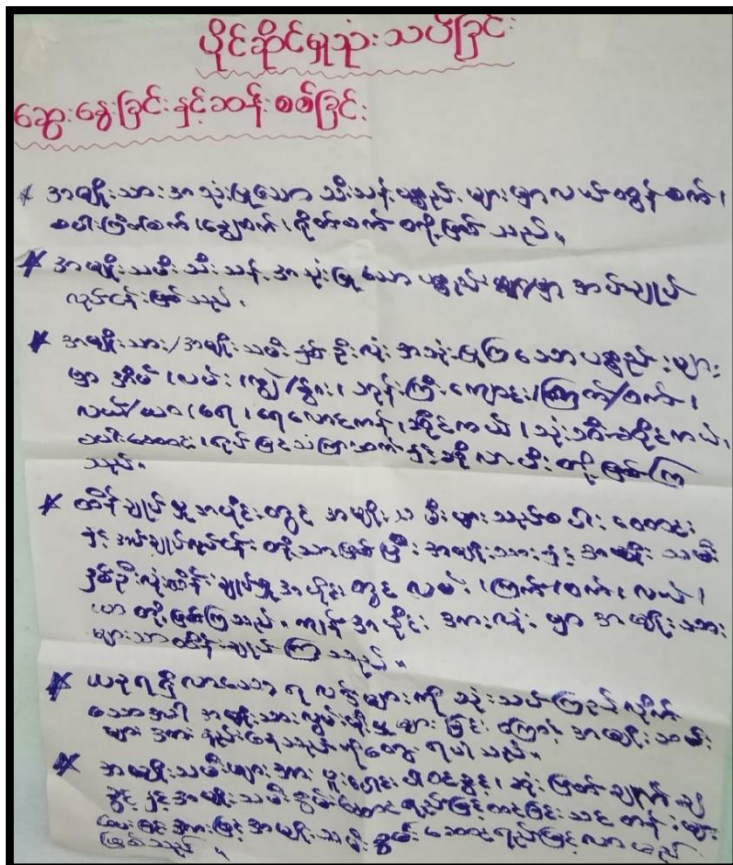 ပိုင်ဆိုင်မှုသုံးသပ်ခြင်း
ဆွေးနွေးခြင်းနှင့်ဆန်းစစ်ခြင်း
* အမျိုးသားအသုံးပြုသော သီးသန့်ပစ္စည်းများမှာလယ်ထွန်စက်၊
စပါးကြိတ်စက်၊ချွေစက်၊ရိတ်စက် တို့ဖြစ်သည်။
* အမျိုးသမီးသီးသန့်အသုံးပြုသော ပစ္စည်းများမှာ အပ်ချုပ်
လုပ်ငန်းဖြစ်သည်။
* အမျိုးသား/အမျိုးသမီးနှစ်ဦးလုံး အသုံးပြုကြသောပစ္စည်းများ
မှာ အိမ်၊လမ်း၊ကျွဲ/နွား၊ဘုန်းကြီးကျောင်း၊ကြက်/ဝက်၊
လယ်/ယာ၊ရေ၊ရေလှောင်ကန်၊ဆိုင်ကယ်၊သုံးဘီးဆိုင်ကယ်၊
ရုပ်မြင်သံကြားစက်နှင့်ဆိုလာမီးတို့ဖြစ်ကြ
သည်။
* ထိန်းချုပ်မှုအပိုင်းတွင် အမျိုးသမီးများသည်စပါး
နှင့်အပ်ချုပ်လုပ်ငန်း တို့သာဖြစ်ပြီးအမျိုးသားနှင့်အမျိုးသမီး
နှစ်ဦးလုံးထိန်းချုပ်မှုအပိုင်းတွင် လမ်း၊ကြက်၊ဝက်၊လယ်၊
ယာတို့ဖြစ်ကြသည်။ကျန်အပိုင်းအားလုံးမှာအမျိုးသား
များသာထိန်းချုပ်ကြသည်။
* ယခုရရှိလာသော ရလဒ်များကို သုံးသပ်ကြည့်လိုက်
သောအခါ အမျိုးသားလွှမ်းမိုးမှုများခြင်းကြောင့် အမျိုးသမီး
များအားနည်းနေသည်ကိုတွေ့ရပါသည်။
* အမျိုးသမီးများအားပူးပေါင်းပါဝင်ခွင့်၊ဆုံးဖြတ်ချက်ချ
ခွင့်နှင့်အမျိုးသမီးစွမ်းဆောင်ရည်မြှင့်တင်ခြင်းသင်တန်းများ
ပေးခြင်းအားဖြင့်အမျိုးသမီးစွမ်းဆောင်ရည်မြင့်လာမည်
ဖြစ်သည်။